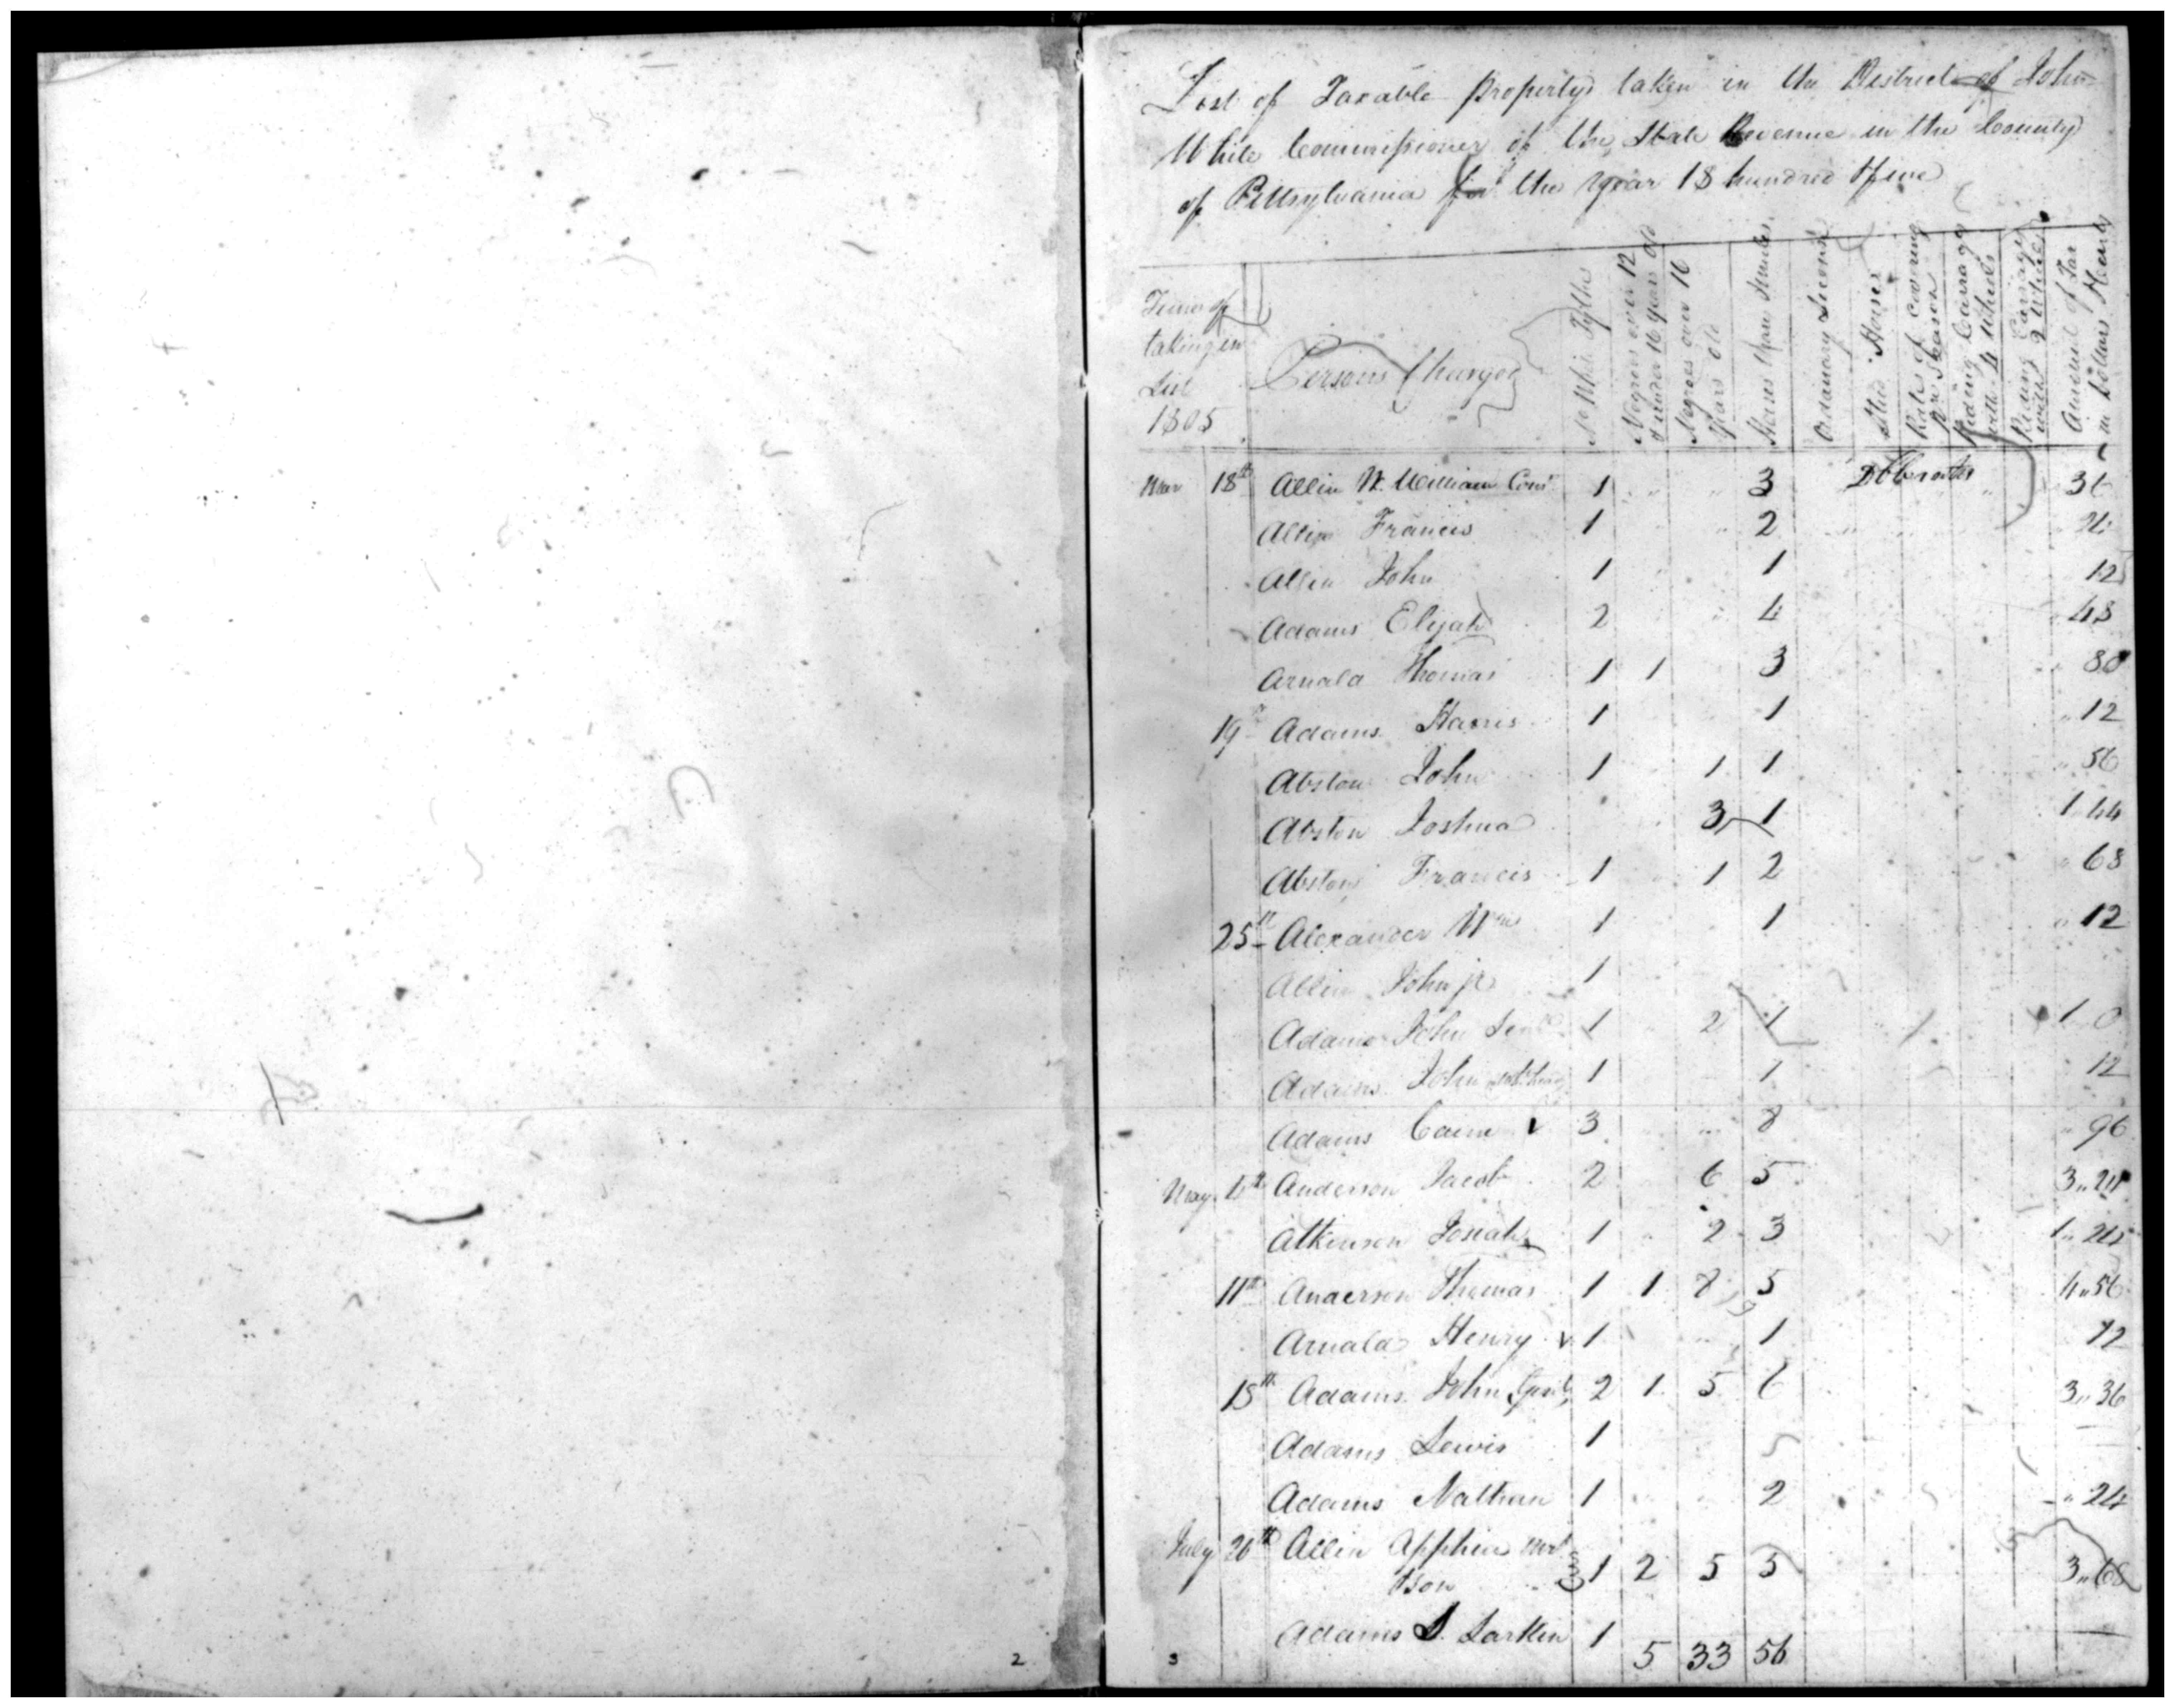 List of Taxable Property taken in the District of John
White Commissioner of the State Revenue in the County
of Pittsylvania for the year 18 hundred & five
Time of taking in List 1805
Persons Charged
No White Tythes
Negroes over 12 & under 16 years old
Negroes over 16 years old
Horses Mares & Mules
Ordanary Licence
Stud Horses
Rate of covering pr Season
Riding Carrages with 4 Wheels
Riding Carriages with 2 Wheels
Amount of Tax in dollars & Cents
Mar 18th Allin W. William 1 3 36
Allin Francis 1 2 24
Allin John 1 1 12
Adams Elijah 2 4 48
Arnald Thomas 1 1 3 80
19th Adams Harris 1 1 12
Abston John 1 1 1 56
Abston Joshua 3 1 1 44
Abston Francis 1 1 2 68
25th Alexander Wm 1 1 12
Allin John jr 1
Adams John Senr 1 2 1 1 0
Adams John 1 1 12
Adams Cain 3 8 96
May Anderson Jacob 2 6 5 3 " 24
Atkinson Josiah 1 2 3 1 " 24
11th Anderson Thomas 1 1 8 5 4 " 56
Arnald Henry 1 1 12
15th Adams John 2 1 5 6 3 " 36
Adams Lewis 1
Adams Nathan 1 2 " 24
July 20th Allin Apphia
& Son 1 2 5 5 3 " 68
Adams S. Larkin 1
5 33 56
2
3